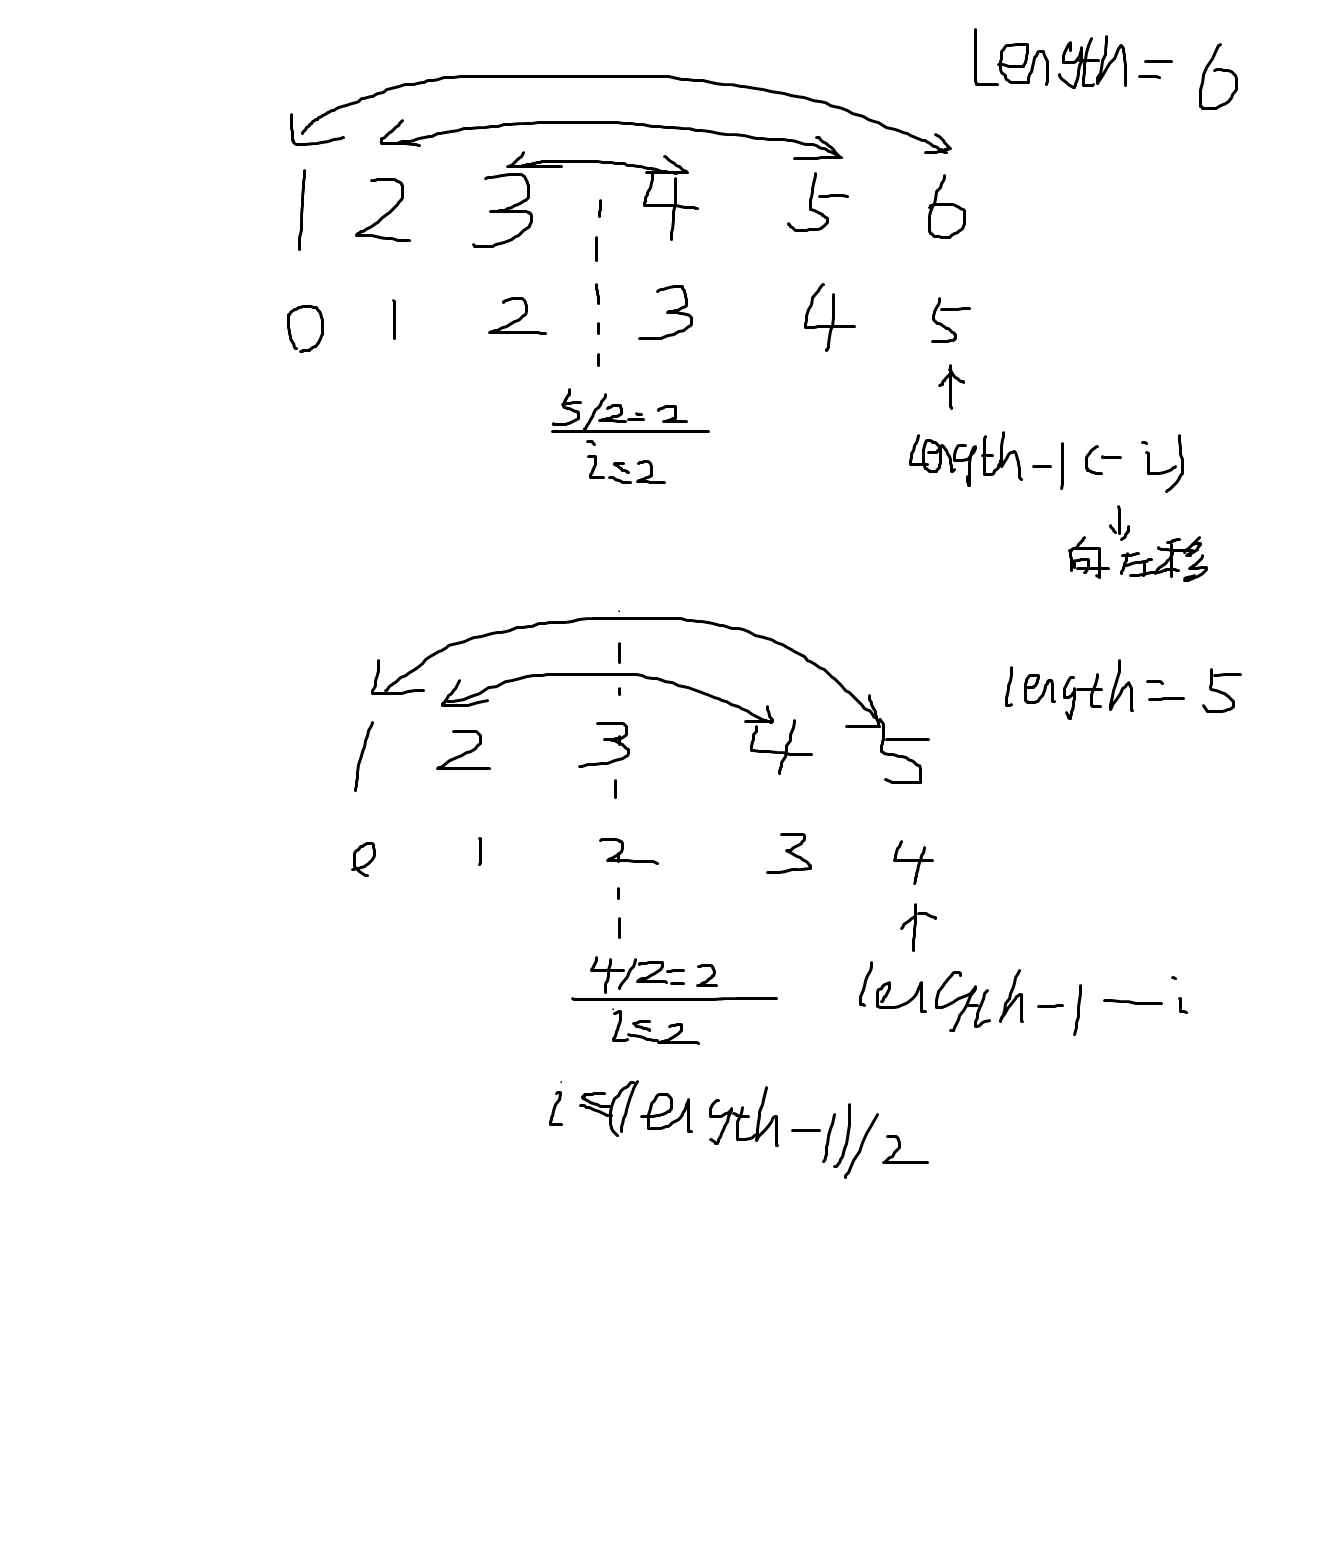 Length = 6
1 2 3 4 5 6
0 1 2 3 4 5
5/2=2
i≤2
length-1(-i)
向左移
length=5
1 2 3 4 5
0 1 2 3 4
4/2=2
i≤2
length-1-i
i≤(length-1)/2